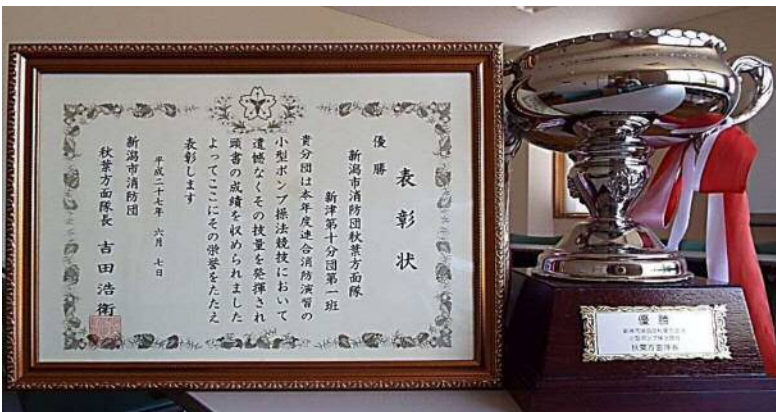 表彰状
優勝
新潟市消防団秋葉方面隊
新津第十分団第一班
貴分団は本年度連合消防演習の
小型ポンプ操法競技において
遺憾なくその技量を発揮され
頭書の成績を収められました
よってここにその栄誉をたたえ
表彰します
平成二十七年 六月 七日
新潟市消防団
秋葉方面隊長 吉田浩衛
優勝
新潟市消防団秋葉方面隊
小型ポンプ操法競技
秋葉方面隊長